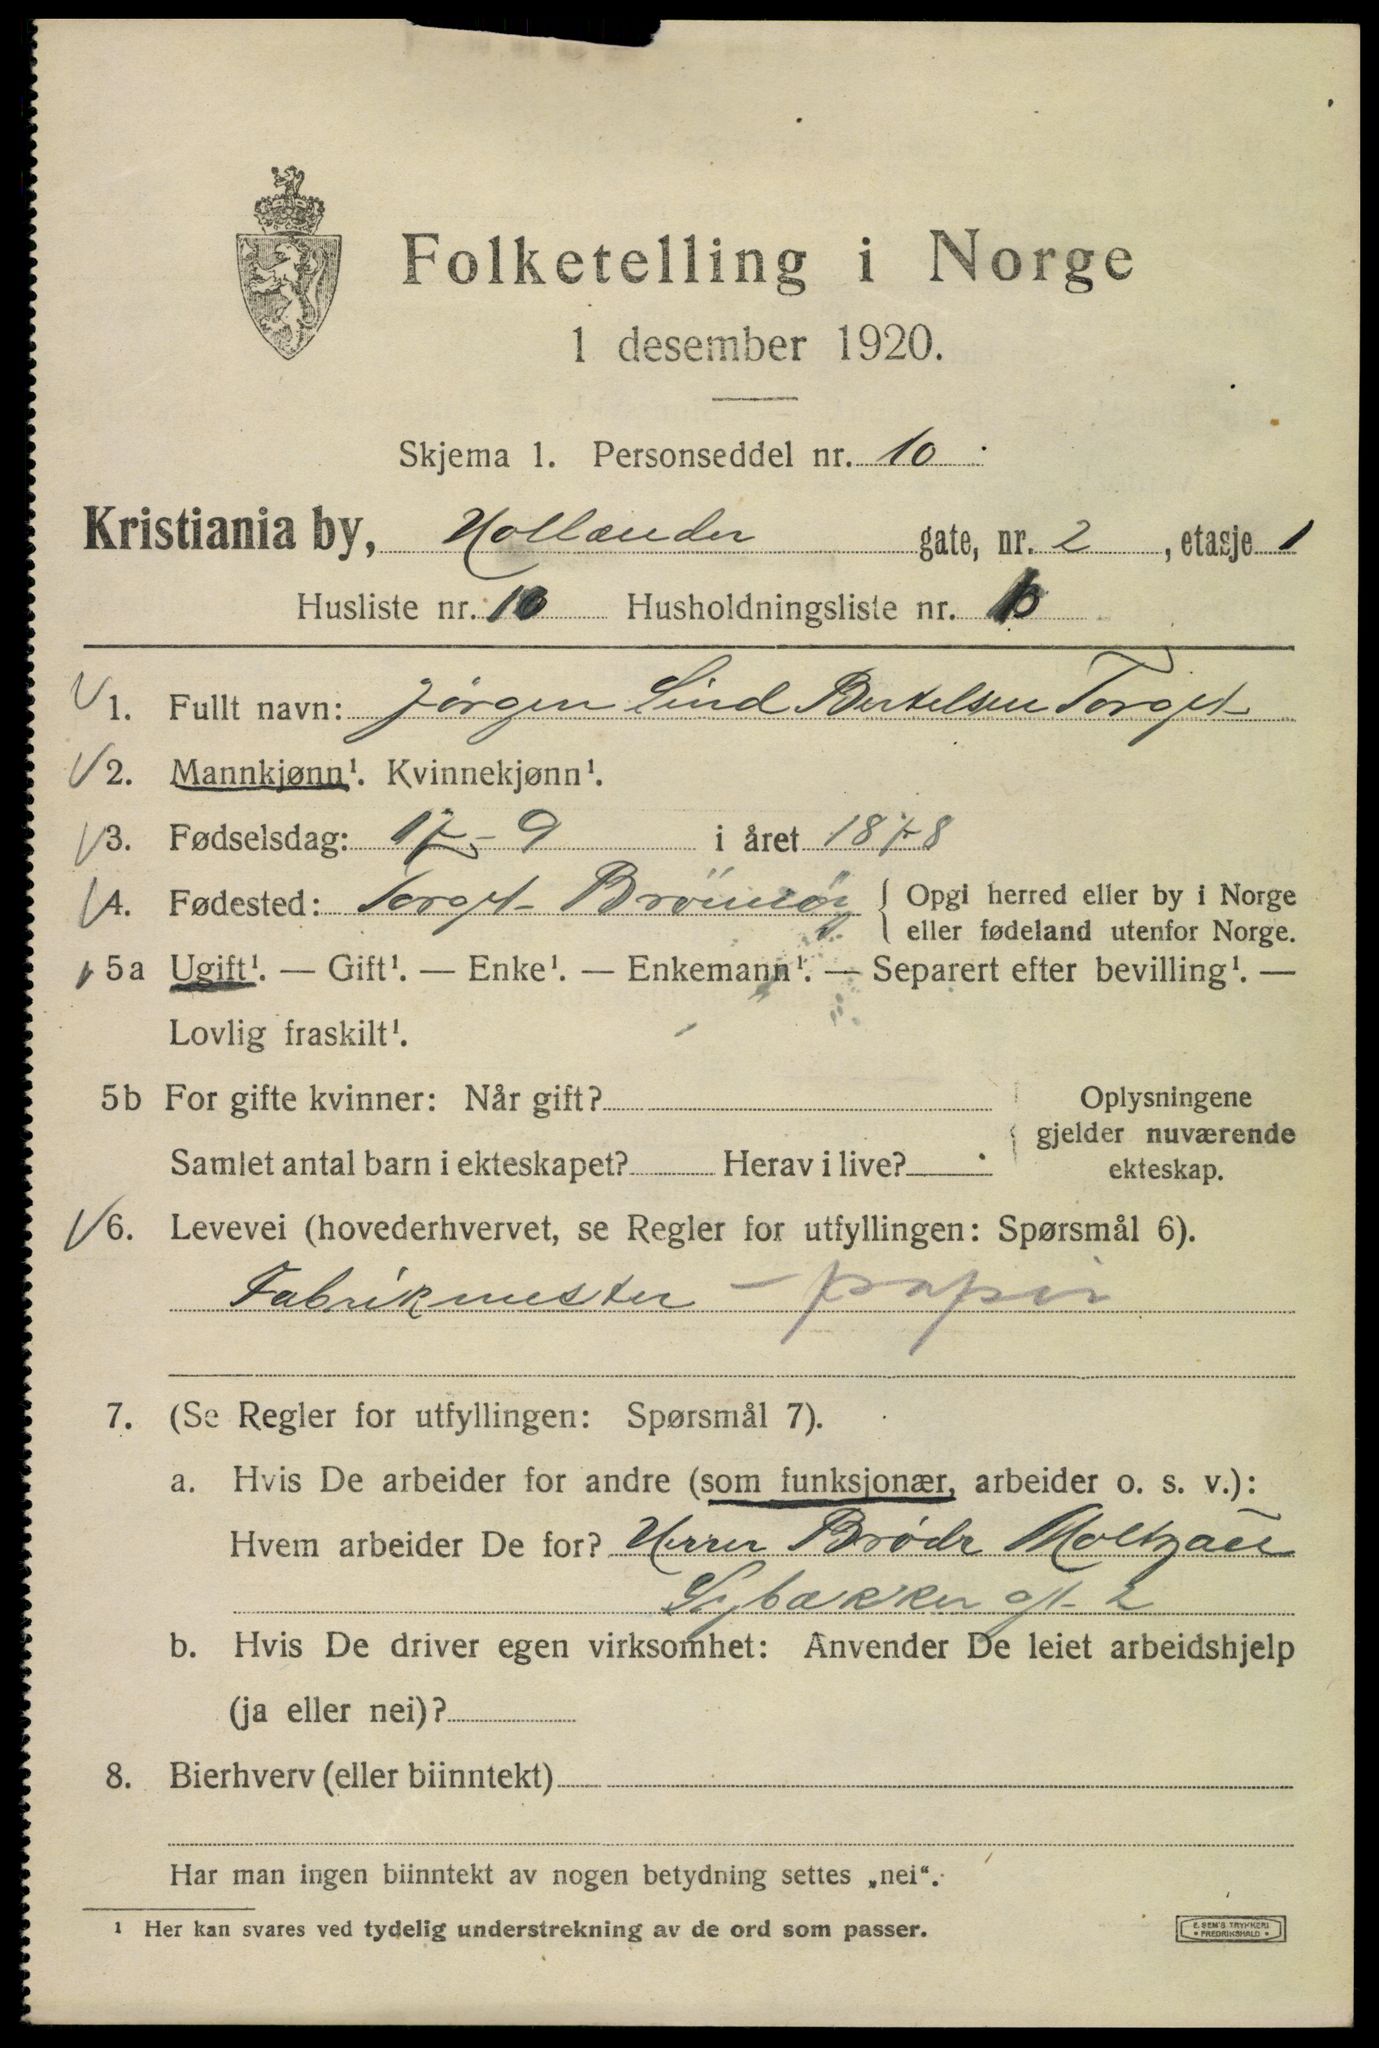 Folketelling i Norge
1 desember 1920.
Skjema 1. Personseddel nr. 10
Kristiania by, Hollænder gate, nr. 2, etasje 1
Husliste nr. 10 Husholdningsliste nr.
1. Fullt navn: Jörgen Lind Bertelsen Torget
2. Mannkjønn¹. Kvinnekjønn¹.
3. Fødselsdag: 17 - 9 i året 1878
4. Fødested: Torget Brönnöy { Opgi herred eller by i Norge
eller fødeland utenfor Norge.
5a Ugift¹. — Gift¹. — Enke¹. — Enkemann¹. — Separert efter bevilling¹. —
Lovlig fraskilt¹.
5b For gifte kvinner: Når gift? Oplysningene
gjelder nuværende
Samlet antal barn i ekteskapet? Herav i live?
ekteskap.
6. Levevei (hovederhvervet, se Regler for utfyllingen: Spørsmål 6).
Fabrikmester - papir
7. (Se Regler for utfyllingen: Spørsmål 7).
a. Hvis De arbeider for andre (som funksjonær, arbeider o. s. v.):
Hvem arbeider De for? Herrer Brödr Moltzau
gt. 2
b. Hvis De driver egen virksomhet: Anvender De leiet arbeidshjelp
(ja eller nei)?
8. Bierhverv (eller biinntekt)
Har man ingen biinntekt av nogen betydning settes „nei“.
¹ Her kan svares ved tydelig understrekning av de ord som passer.
E. SEM'S TRYKKERI
• FREDRIKSHALD •